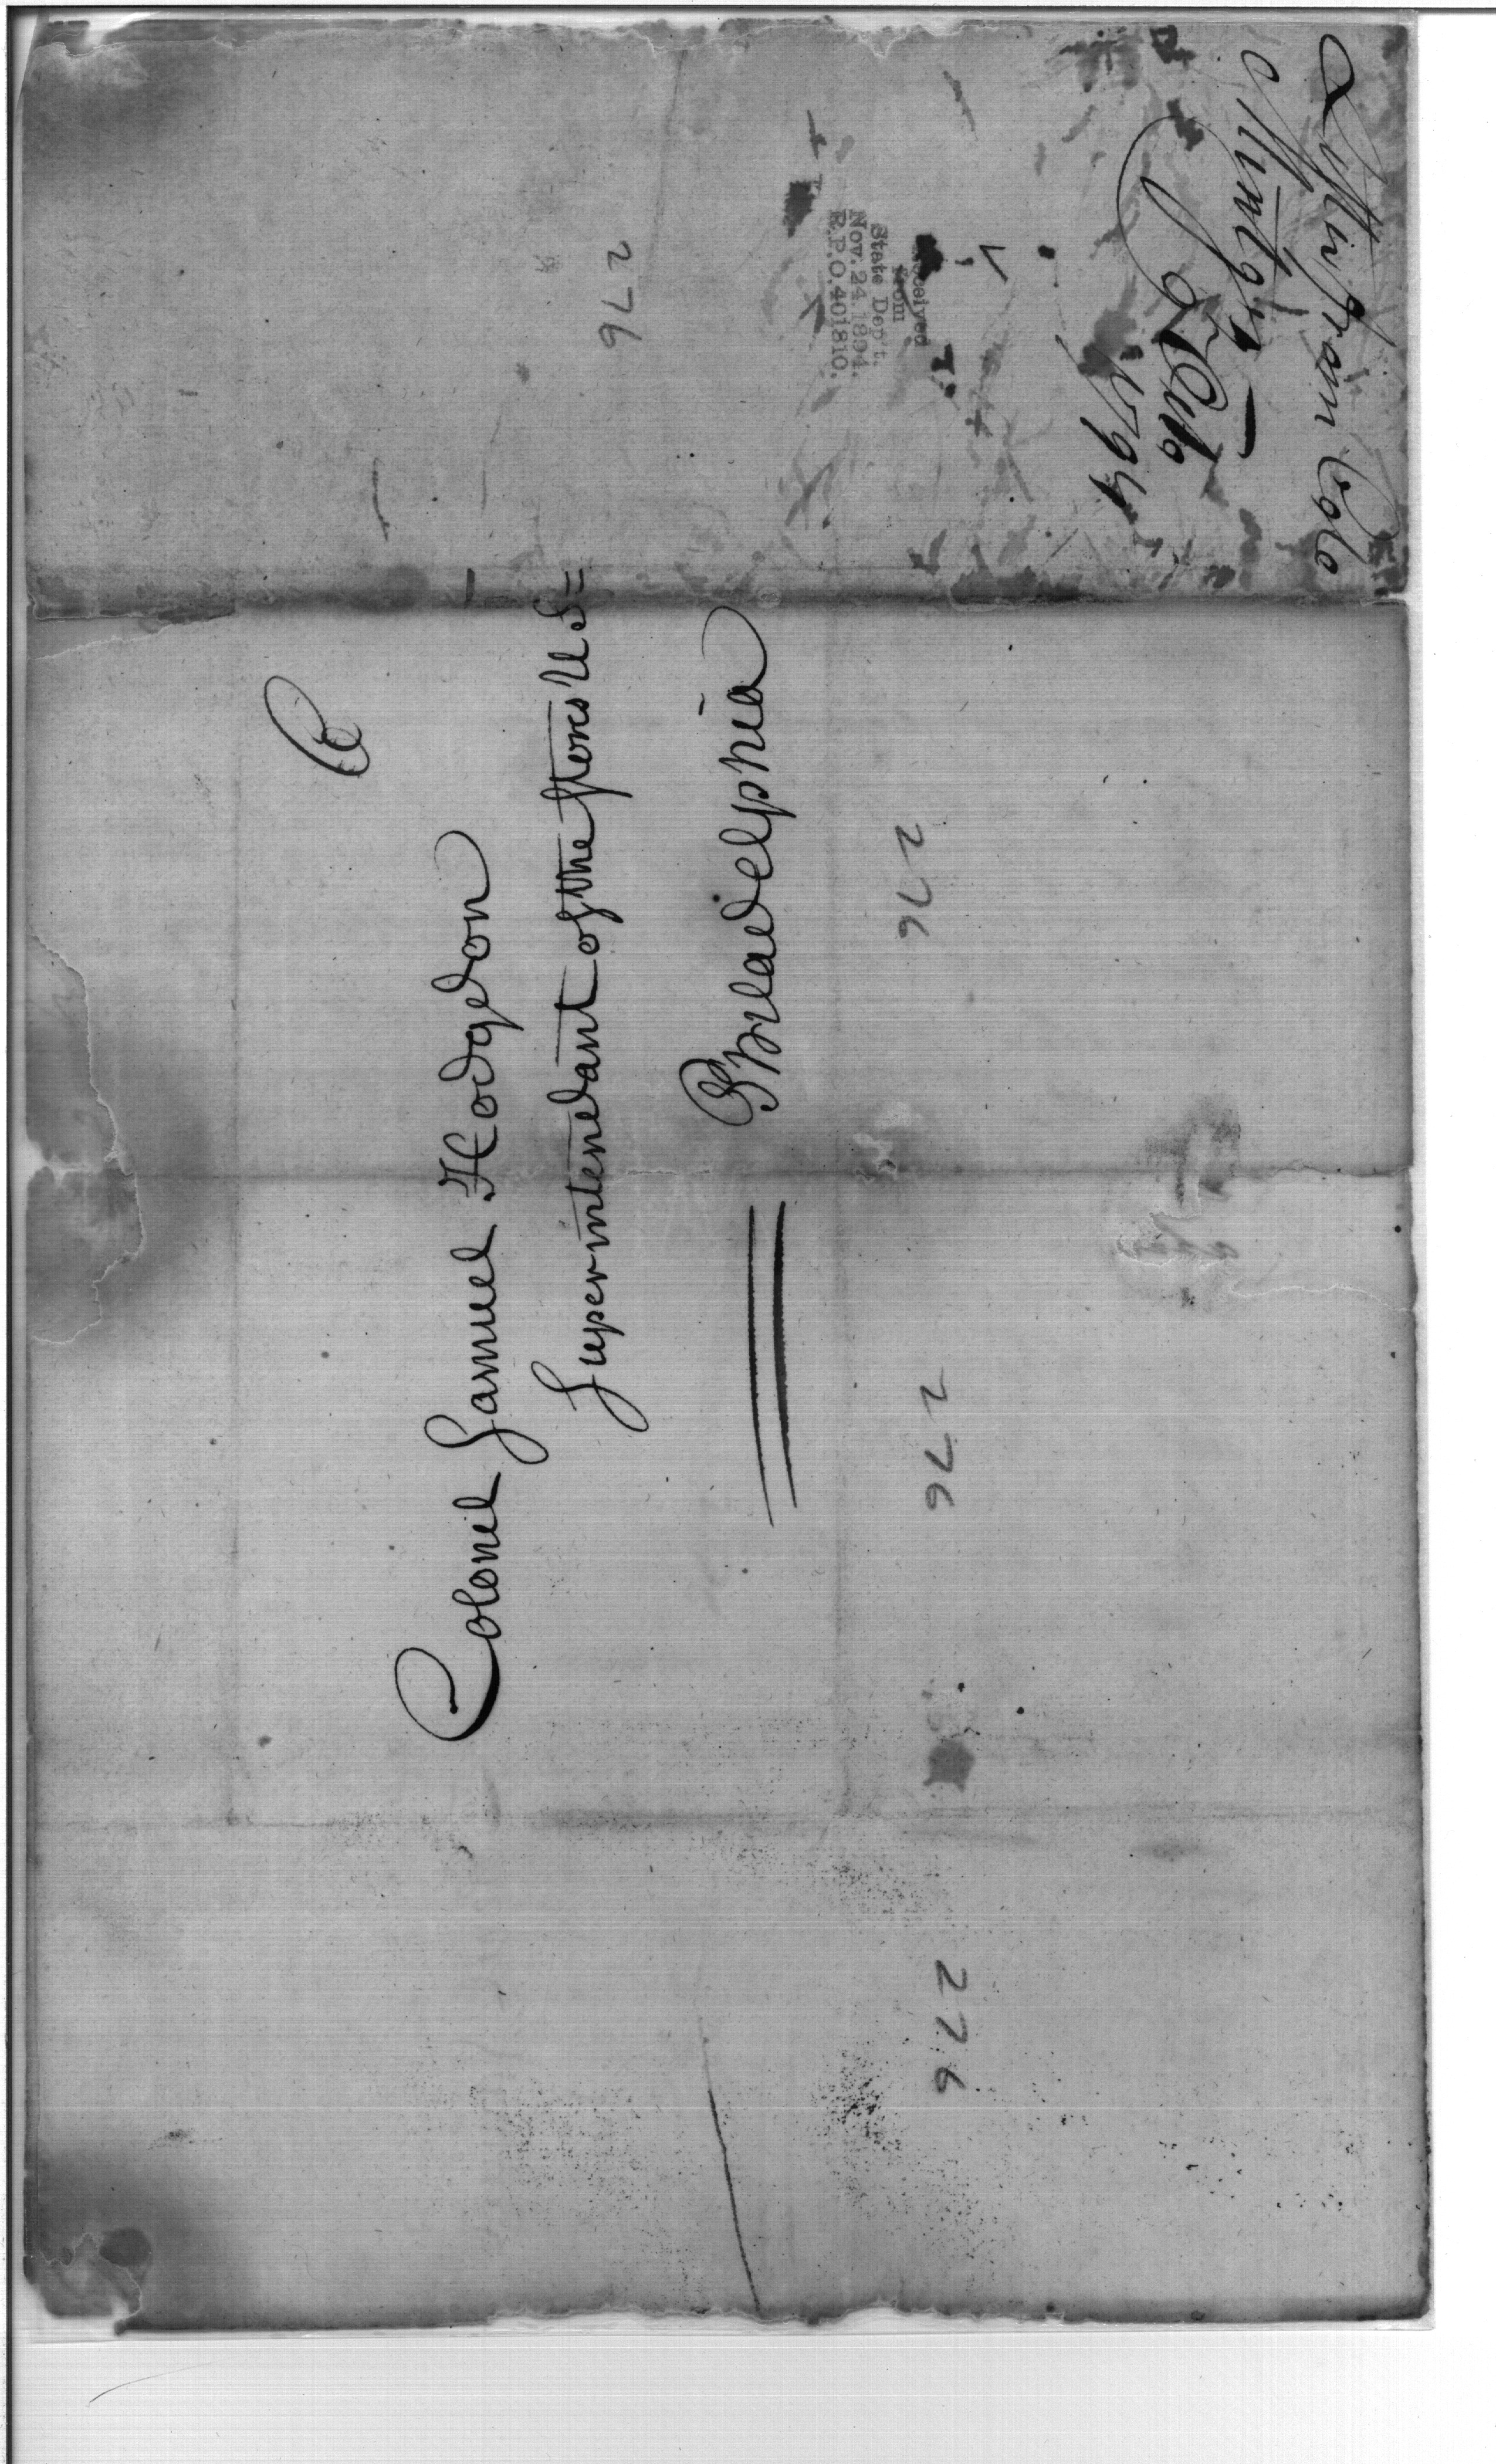 Letter from Colo
6 Feb
1794
Received
from
State Dep't.
Nov. 24. 1894.
R.P.O. 401810.
276
Colonel Samuel Hodgdon
Superintendant of the Stores U S =
Philadelphia
276
276
276